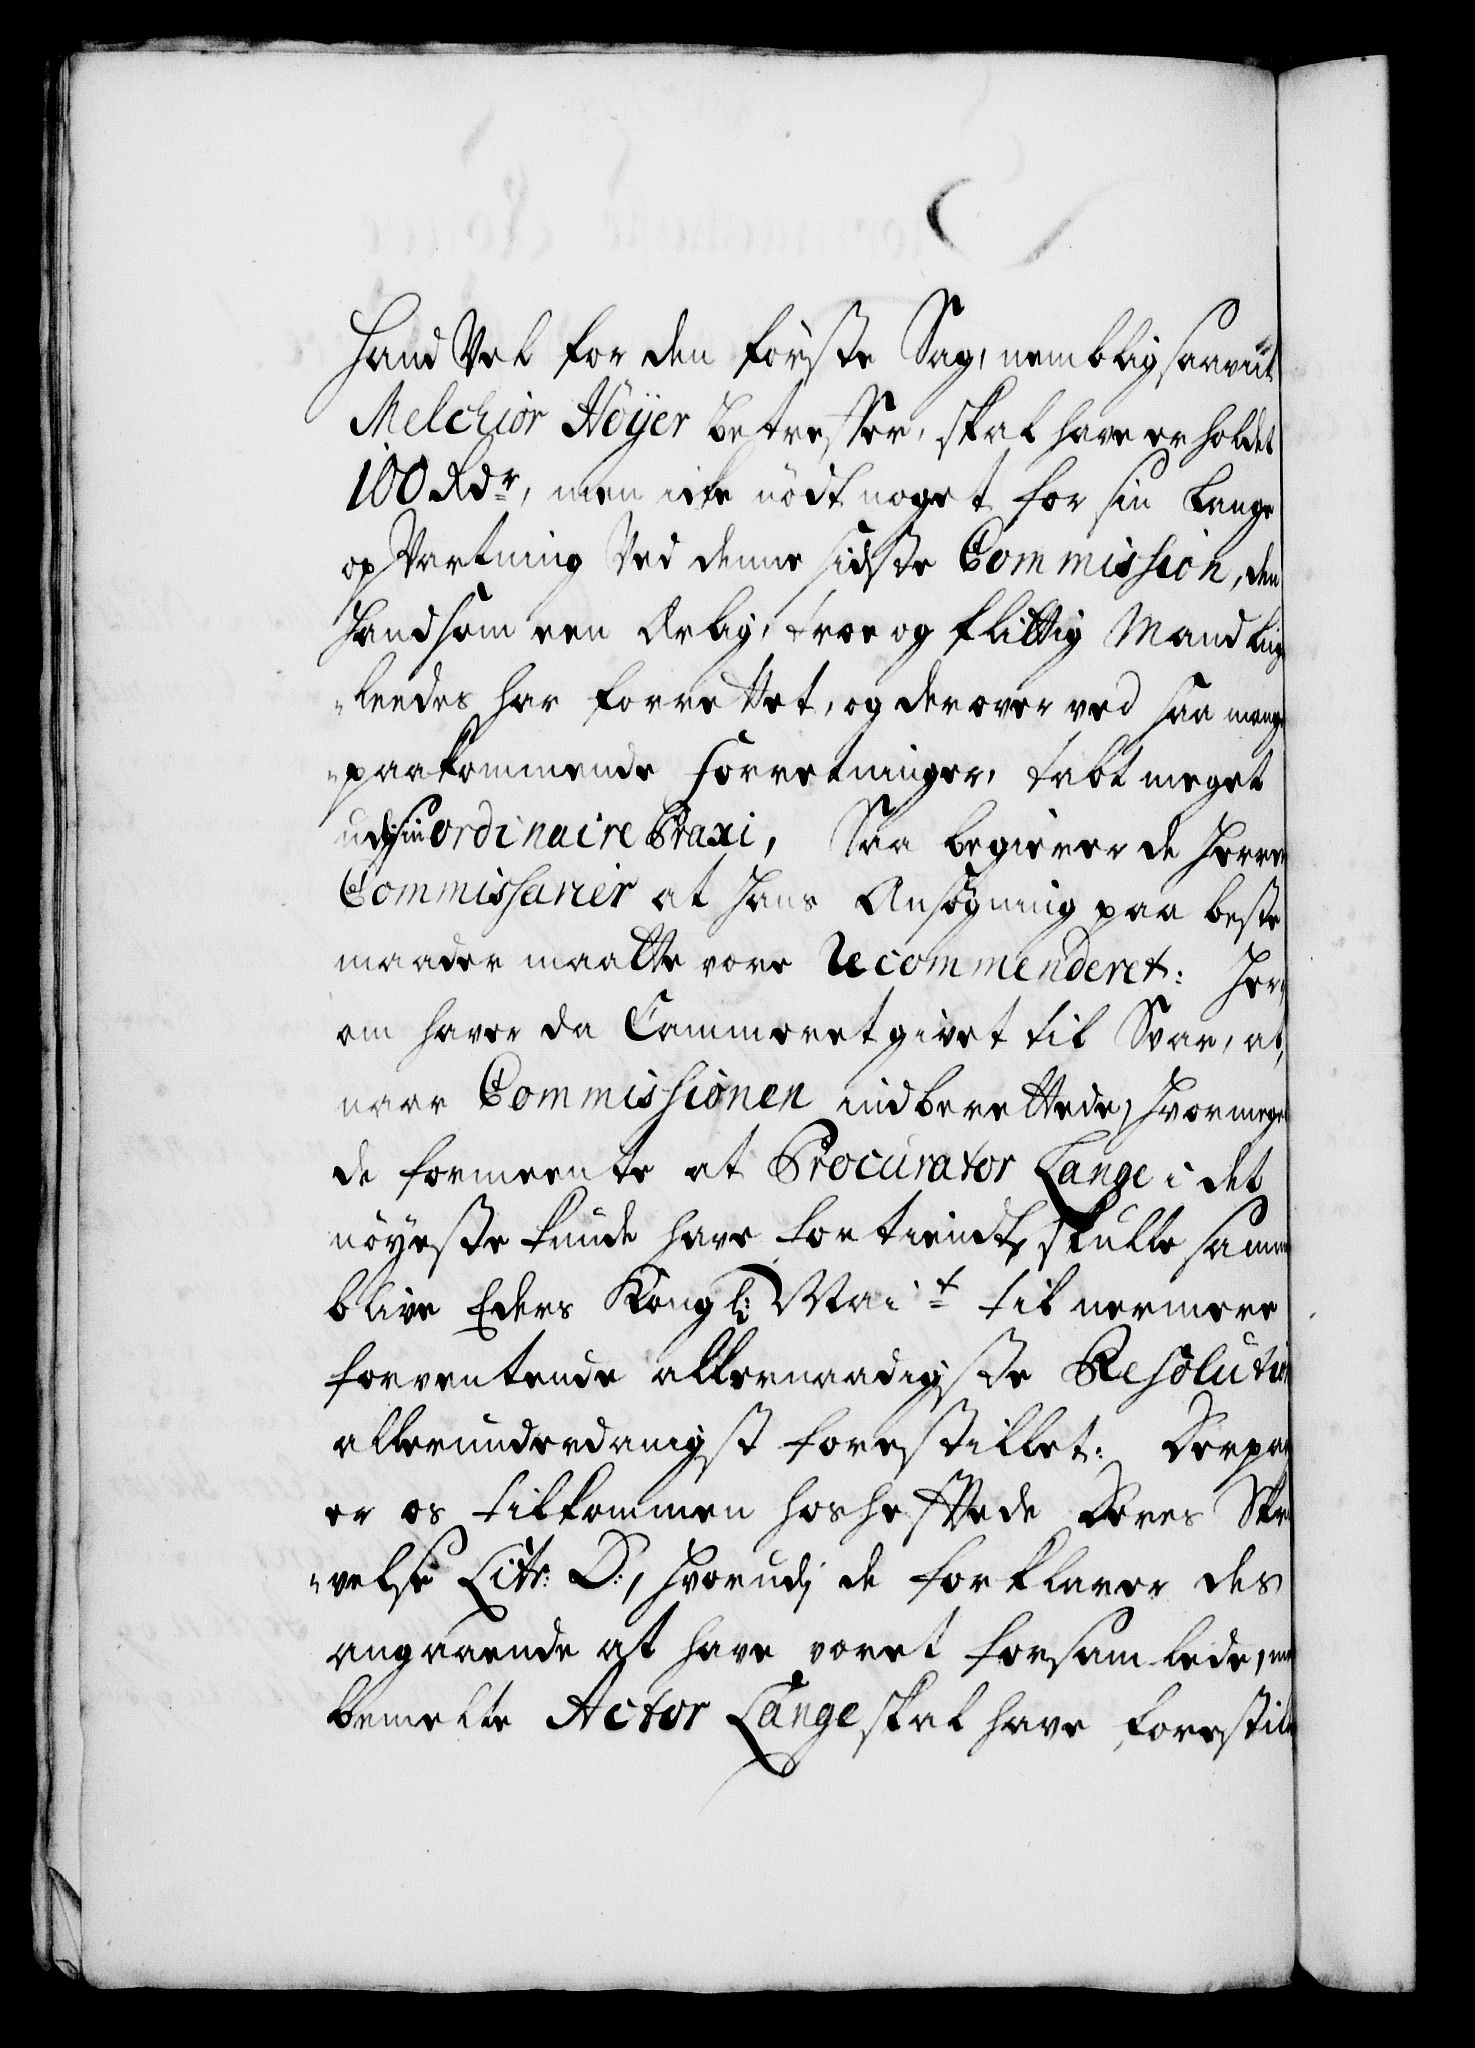 Hand Vel for den første Sag, nemblig saaviit
Melchior Höÿer betreffer, skal have erholdet
100 Rdr, men icke nödt noget for sin lange
opVartning Ved denne sidste Commission, den
Hand som een Ærlig, troe og flittig Mand lige
"ledes har forrettet, og derover ved saa mange
"paakommende Forretninger, tabt meget
udj sin ordinaire Praxi, Saa begierer de Herrer
Commissarier at Hans Ansøgning paa beste
maader maatte vore Recommenderet: Her,
om haver da Cammeret givet til Svar, at,
naar Commissionen indberettede, Hvormeget
de formeente at Procurator Lange i det
nöÿeste kunde have fortiendt, skulle samme
blive Eders Kongl: Mait til nermere
forventende allernaadigste Resolution
allerunderdanigst forestillet: Derpaa
er os tilkommen hosheftede Deres Skri
"velse Litr: D:, Hvorudj de forklarer des
angaaende at have voret forsamlede, men
bemelte Actor Lange skal have forestill